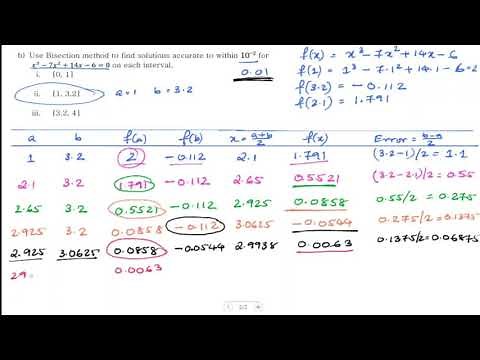 b) Use Bisection method to find solutions accurate to within 10⁻² for
x³ − 7x² + 14x − 6 = 0 on each interval.
0.01
i. [0, 1]
ii. [1, 3.2] a=1 b=3.2
iii. [3.2, 4]
f(x) = x³ − 7x² + 14x − 6
f(1) = 1³ − 7.1² + 14.1 − 6 = 2
f(3.2) = −0.112
f(2.1) = 1.791
a b f(a) f(b) x = a+b/2 f(x) Error = b−a/2
1 3.2 2 −0.112 2.1 1.791 (3.2−1)/2 = 1.1
2.1 3.2 1.791 −0.112 2.65 0.5521 (3.2−2.1)/2 = 0.55
2.65 3.2 0.5521 −0.112 2.925 0.0858 0.55/2 = 0.275
2.925 3.2 0.0858 −0.112 3.0625 −0.0544 0.275/2 = 0.1375
2.925 3.0625 0.0858 −0.0544 2.9938 0.0063 0.1375/2 = 0.06875
29 0.0063